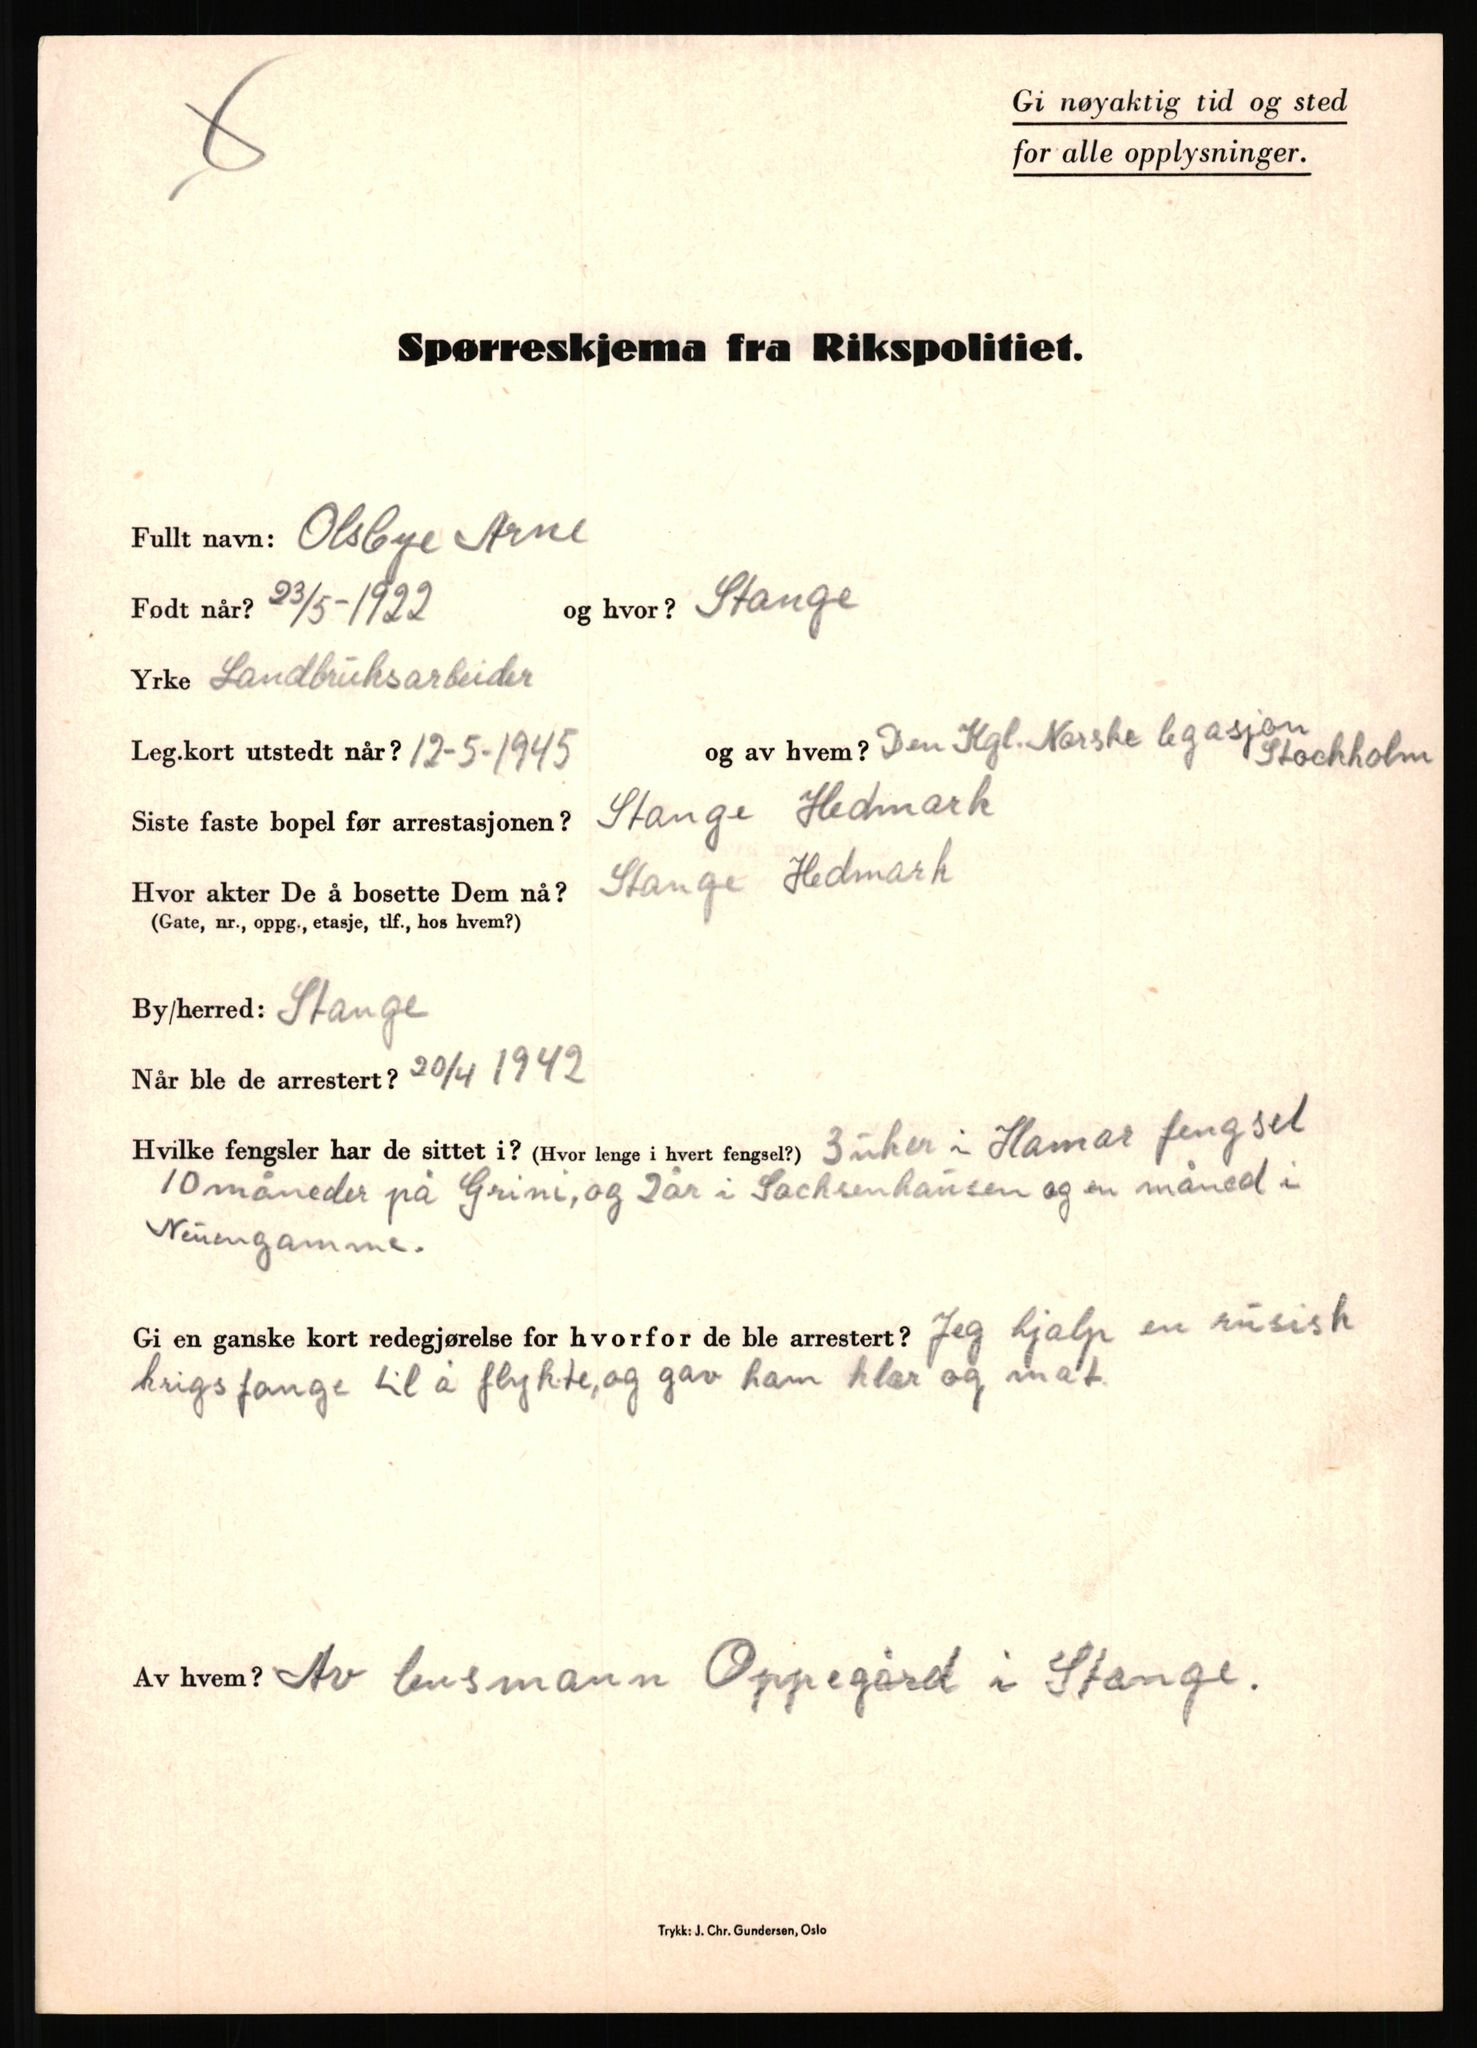 Gi nøyaktig tid og sted
for alle opplysninger.
Spørreskjema fra Rikspolitiet.
Fullt navn: Olsbye Arne
Født når? 23/5-1922 og hvor? Stange
Yrke Landbruksarbeider
Leg.kort utstedt når? 12-5-1945 og av hvem? Den Kgl. Norske legasjon
Stockholm
Siste faste bopel før arrestasjonen? Stange Hedmark
Hvor akter De å bosette Dem nå? Stange Hedmark
(Gate, nr., oppg., etasje, tlf., hos hvem?)
By/herred: Stange
Når ble de arrestert? 20/4 1942
Hvilke fengsler har de sittet i? (Hvor lenge i hvert fengsel?) 3 uker i Hamar fengsel
10 måneder på Grini, og 2 år i Sachsenhausen og en måned i
Neuengamme.
Gi en ganske kort redegjørelse for hvorfor de ble arrestert? Jeg hjalp en rusisk
krigsfange til å flykte, og gav ham klær og mat.
Av hvem? Av lensmann Oppegård i Stange.
Trykk: J. Chr. Gundersen, Oslo